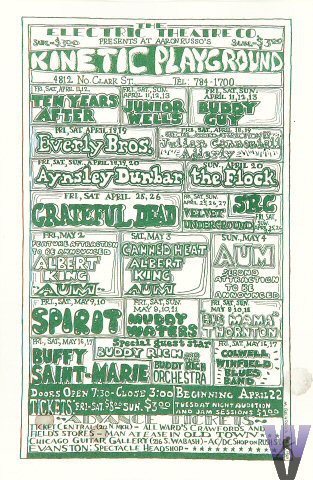 THE
ELECTRIC THEATRE CO
PRESENTS AT AARON RUSSO'S
KINETIC PLAYGROUND
4812 NO. CLARK ST. TEL: 784-1700
FRI, SAT, APRIL 11, 12,
TEN YEARS AFTER
FRI, SAT, SUN. APRIL 11, 12, 13
JUNIOR WELLS
FRI, SAT, SUN. APRIL 11, 12, 13
BUDDY GUY
FRI, SAT APRIL 18, 19
Everly Bros.
FRI, SAT, APRIL 18, 19
Julian Cannonball Adderly
FRI, SAT, SUN. APRIL 18, 19, 20
Aynsley Dunbar
SUN. APRIL 20
the Flock
FRI, SAT APRIL 25, 26
GRATEFUL DEAD
FRI, SAT, SUN APRIL 25, 26, 27
VELVET UNDERGROUND
SRC
FRI, MAY 2
FEATURE ATTRACTION TO BE ANNOUNCED
ALBERT KING
AUM
SAT, MAY 3
CANNED HEAT
ALBERT KING
AUM
SUN, MAY 4
AUM
SECOND ATTRACTION TO BE ANNOUNCED
FRI, SAT, MAY 9, 10
SPIRIT
FRI, SAT, SUN MAY 9, 10, 11
MUDDY WATERS
BIG MAMA THORNTON
FRI, SAT, MAY 16, 17
BUFFY SAINT-MARIE
Special guest star
BUDDY RICH
AND THE BUDDY RICH ORCHESTRA
FRI, SAT, MAY 16, 17
COLWELL WINFIELD BLUES BAND
DOORS OPEN 7:30-CLOSE 3:00
TICKETS: FRI-SAT. $5.00 SUN. $3.00
BEGINNING APRIL 22
TUESDAY NIGHT AUDITION AND JAM SESSIONS $1.00
ADVANCE TICKETS
TICKET CENTRAL (212 N. MICH) - ALL WARD'S CRAWFORDS AND
FIELDS STORES - MAN AT EASE IN OLD TOWN
CHICAGO GUITAR GALLERY (216 S. WABASH) - AC/DC SHOP ON RUSH ST
EVANSTON: SPECTACLE HEADSHOP